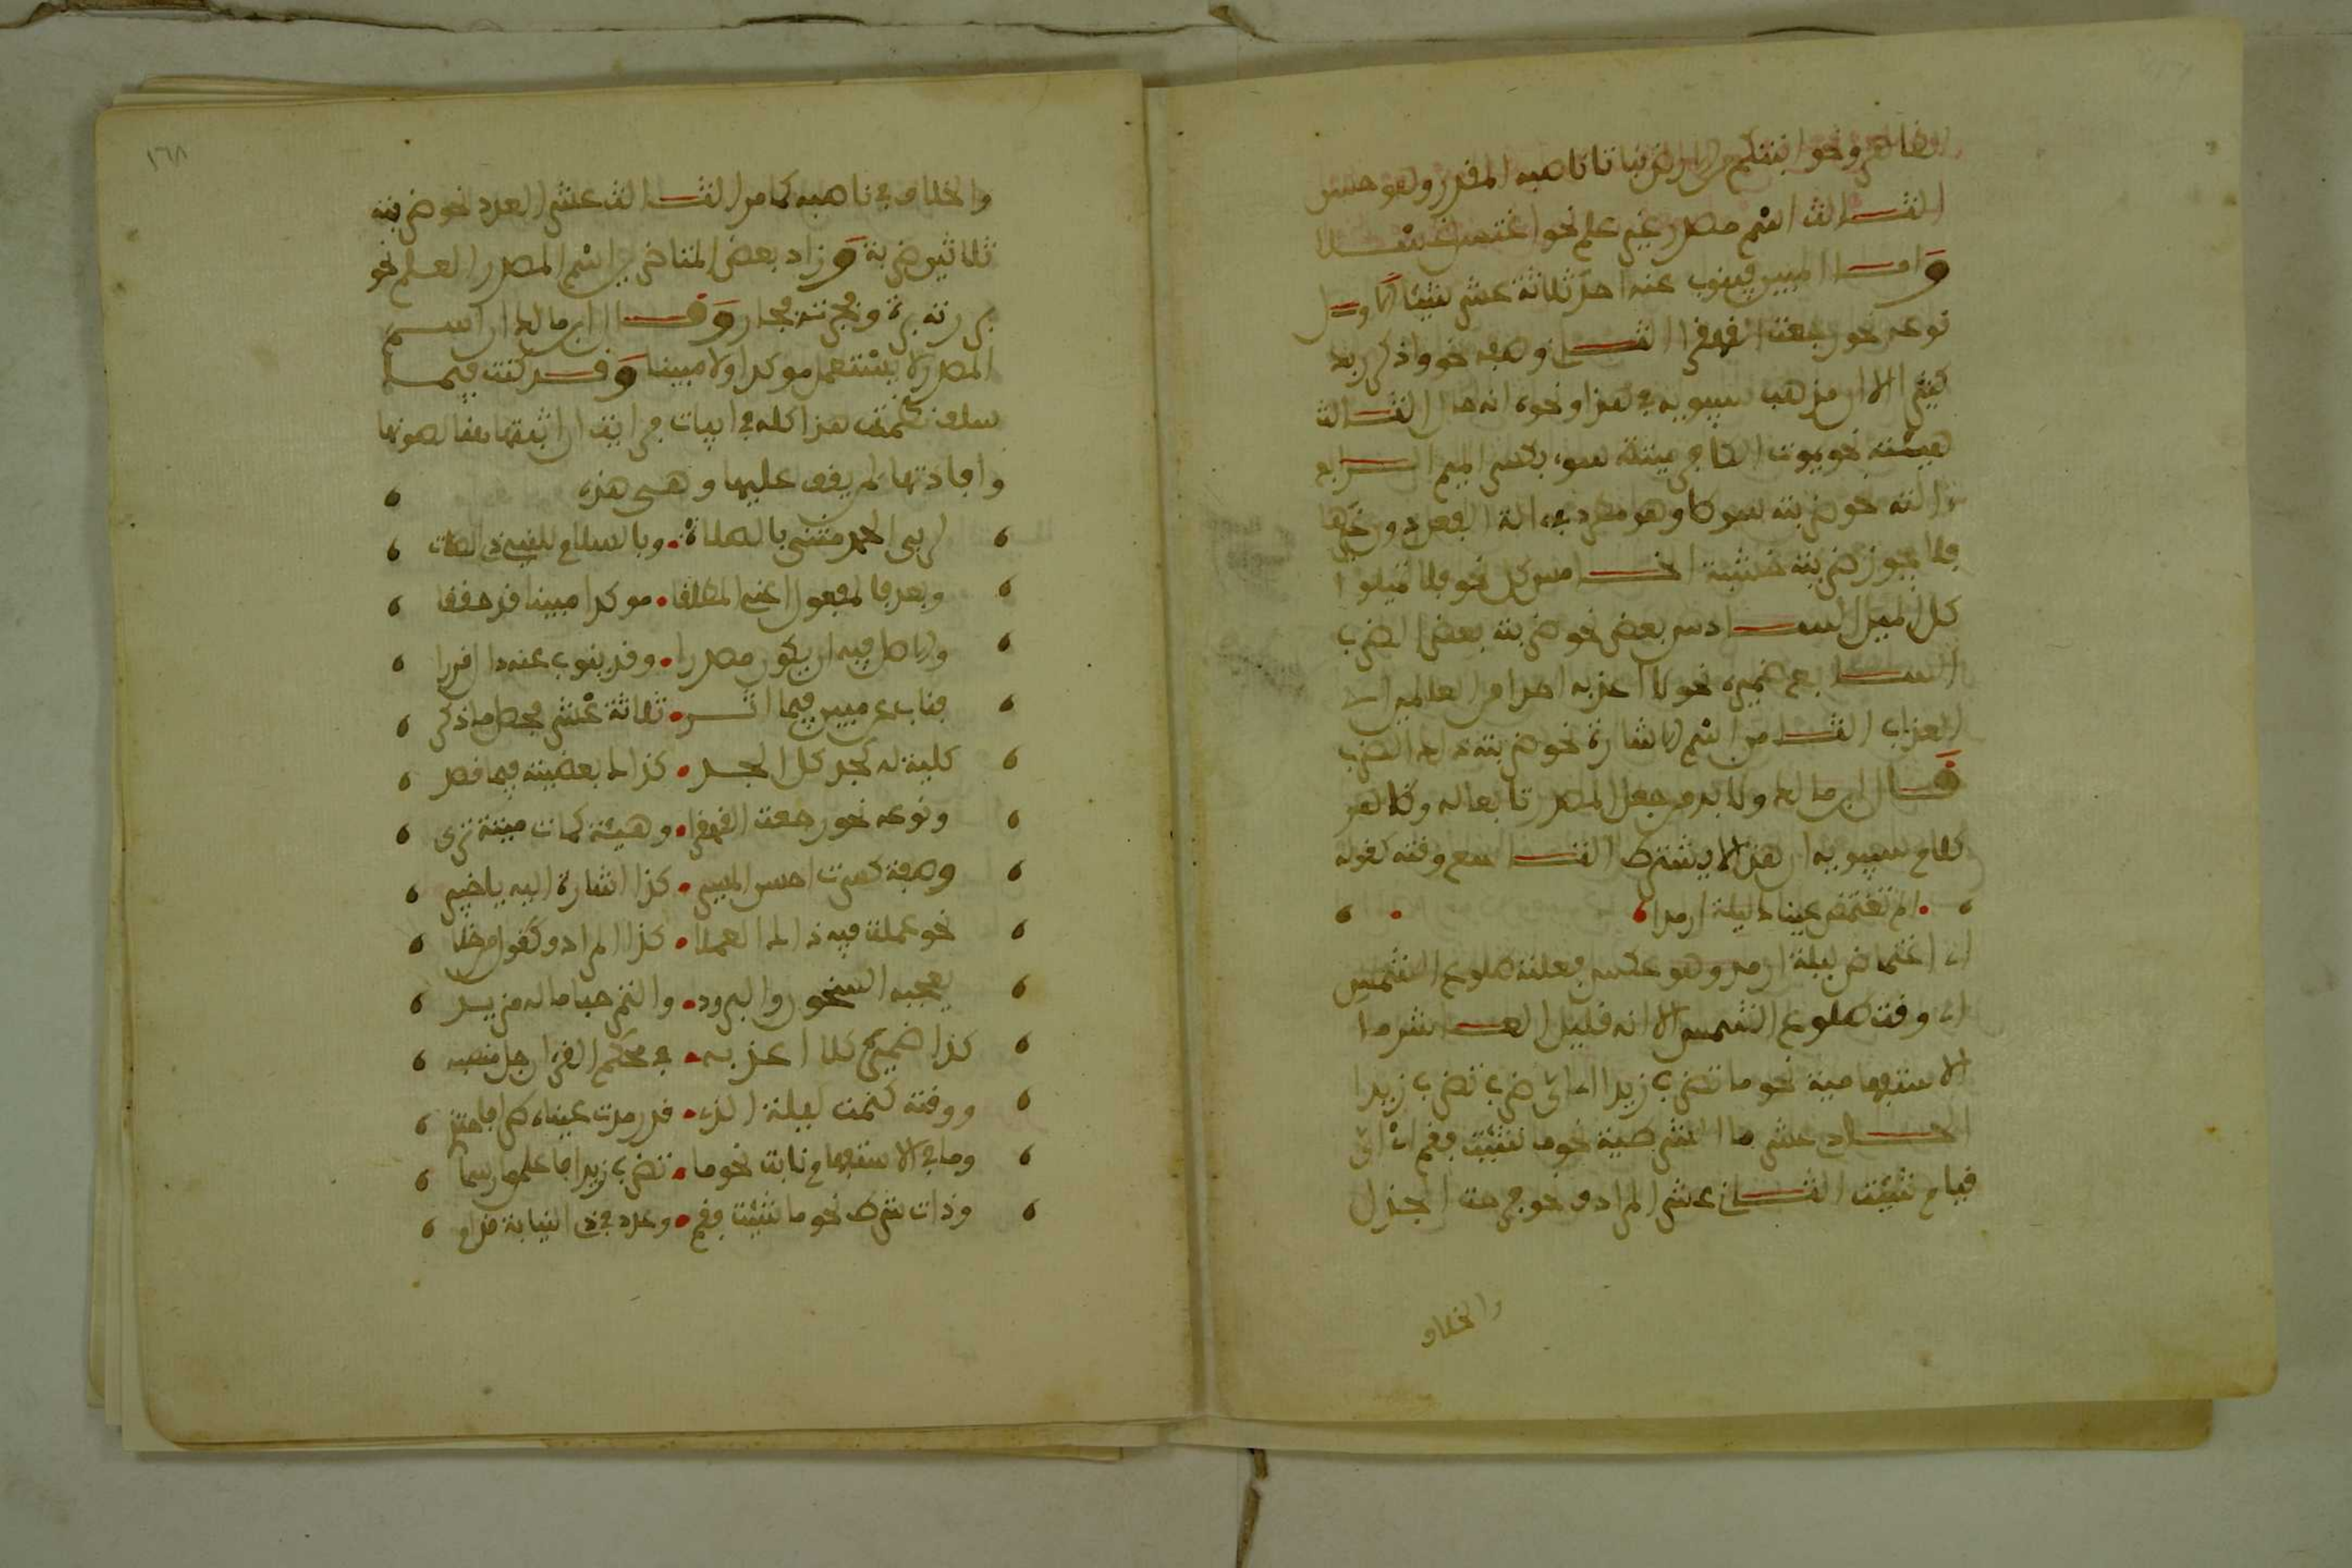 ونحو انبتكم من الارض نباتا ناصبه المقدر وهو حسن
الثالث اسم مصدر غير علم نحو اغتسل غسلا
وامـا المبين فينوب عنه احد ثلاثة عشر شيئا الاول
نوعه نحو رجعت القهقرى الثاني وصفه نحو واذكر ربك
كثيرا الا ان مذهب سيبويه في هذا ونحوه انه حال الثالث
هيئته نحو يموت الكافر ميتة سوء بكسر الميم الـرابع
ءالته نحو ضربته سوطا وهو مطرد في ءالة الفعل دون غيرها
فلا يجوز ضربته خشبة الخـامس كل نحو فلا تميلوا
كل الميل السـادس بعض نحو ضربته بعض الضرب
السـابع ضميره نحو لا اعذبه احدا من العالمين اي
العذاب الثـامن اسم الاشارة نحو ضربته ذلك الضرب
قـال ابن مالك ولا بد من جعل المصدر تابعا له وظاهر
كلام سيبويه ان هذا لا يشترط التـاسع وقته كقوله
الم تغتمض عيناك ليلة ارمدا
اي اغتماض ليلة ارمد وهو عكس فعلته طلوع الشمس
اي وقت طلوع الشمس الا انه قليل العـاشر ما
الاستفهامية نحو ما تضرب زيدا اي اي ضرب تضرب زيدا
الحـادي عشر ما الشرطية نحو ما شئت فقم اي اي
قيام شئت الثـاني عشر المرادف نحو فرحت الجذل
والخلاف
١٦٨
والخلاف في ناصبه كما مر الثـالث عشر العدد نحو ضربته
ثلاثين ضربة وزاد بعض المتاخرين اسم المصدر العلم نحو
بررته برة وفجرته فجار وقـال ابن مالك ان اسم
المصدر لا يستعمل موكدا ولا مبينا وقـد كنت فيمـا
سلف نظمت هذا كله في ابيات فرايت ان اثبتها هنا لصونها
وافادتها لمن يقف عليها وهـي هذه
لربي الحمد مثنى بالصلاة وبالسلام للنبي ذي الصلات
وبعد فالمفعول اعني المطلقا موكدا مبينا قد حققا
والاصل فيه ان يكون مصدرا وقد ينوب عنه ما قررا
فناب عن مبين فيما اثـر ثلاثة عشر محصل ما ذكر
كلية له كجد كل الجـد كذاك بعضيته فيما قصد
ونوعه نحو رجعت القهقرى وهيئة كمات ميتة ترى
وصفة كسرت احسن المسير كذا اشارة اليه يا خبير
نحو عملت فيه ذاك العملا كذا المرادف كقول من خلا
يعجبه السخون والبرود والتمر حبا ما له مزيـد
كذا ضمير كلا اعذبـه في محكم القران جل منصبه
ووقته كنمت ليلة الذي قد رمدت عيناه
وما في الاستفهام نابت نحو ما تضرب زيدا فاعلمن
وذات شرط نحو ما شئت فقم وعدد في ذي النيابة